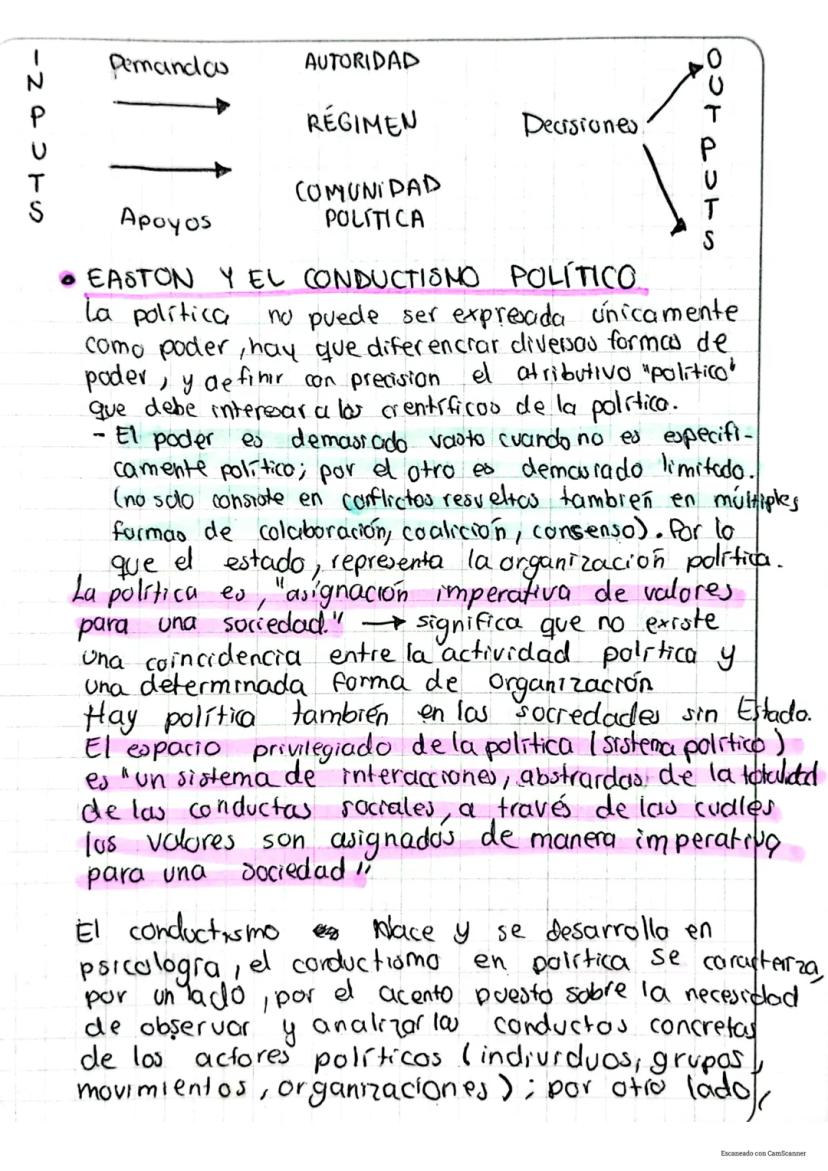 INPUTS
Demandas
AUTORIDAD
RÉGIMEN
Decisiones
COMUNIDAD
POLÍTICA
Apoyos
OUTPUTS
• EASTON Y EL CONDUCTISMO POLÍTICO
La política no puede ser expresada únicamente
como poder, hay que diferenciar diversas formas de
poder, y definir con precision el atributivo "político"
que debe interesar a los científicos de la política.
- El poder es demasiado vasto cuando no es especifi-
camente político; por el otro es demasiado limitado.
(no solo consiste en conflictos resueltos también en múltiples
formas de colaboración, coalición, consenso). Por lo
que el estado, representa la organización política.
La política es, "asignación imperativa de valores
para una sociedad." → significa que no existe
una coincidencia entre la actividad política y
una determinada forma de organización
Hay política también en las sociedades sin Estado.
El espacio privilegiado de la política (sistema político)
es "un sistema de interacciones, abstraídas de la totalidad
de las conductas sociales, a través de las cuales
los valores son asignados de manera imperativa
para una sociedad"
El conductismo Nace y se desarrollo en
psicología, el conductismo en política se caracteriza,
por un lado, por el acento puesto sobre la necesidad
de observar y analizar las conductas concretas
de los actores políticos (individuos, grupos,
movimientos, organizaciones); por otro lado,
Escaneado con CamScanner